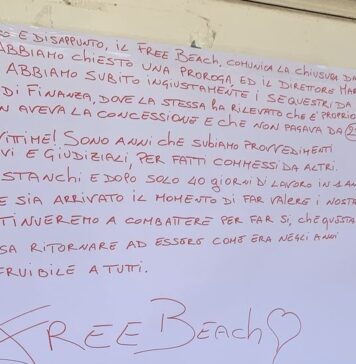 E DISAPPUNTO, IL FREE BEACH, COMUNICA LA CHIUSURA
ABBIAMO CHIESTO UNA PROROGA, ED IL DIRETTORE
ABBIAMO SUBITO INGIUSTAMENTE I SEQUESTRI DA
DI FINANZA, DOVE LA STESSA HA RILEVATO CHE E' PROPRIO
AVEVA LA CONCESSIONE E CHE NON PAGAVA DA
VITTIME! SONO ANNI CHE SUBIAMO PROVVEDIMENTI
VI E GIUDIZIALI, PER FATTI COMMESSI DA ALTRI.
STANCHI E DOPO SOLO 40 GIORNI DI LAVORO IN 1 ANNO
E SIA ARRIVATO IL MOMENTO DI FAR VALERE I NOSTRI
TINUEREMO A COMBATTERE PER FAR SI, CHE QUESTA
SA RITORNARE AD ESSERE COME ERA NEGLI ANNI
FRUIBILE A TUTTI.
FREE BEACH